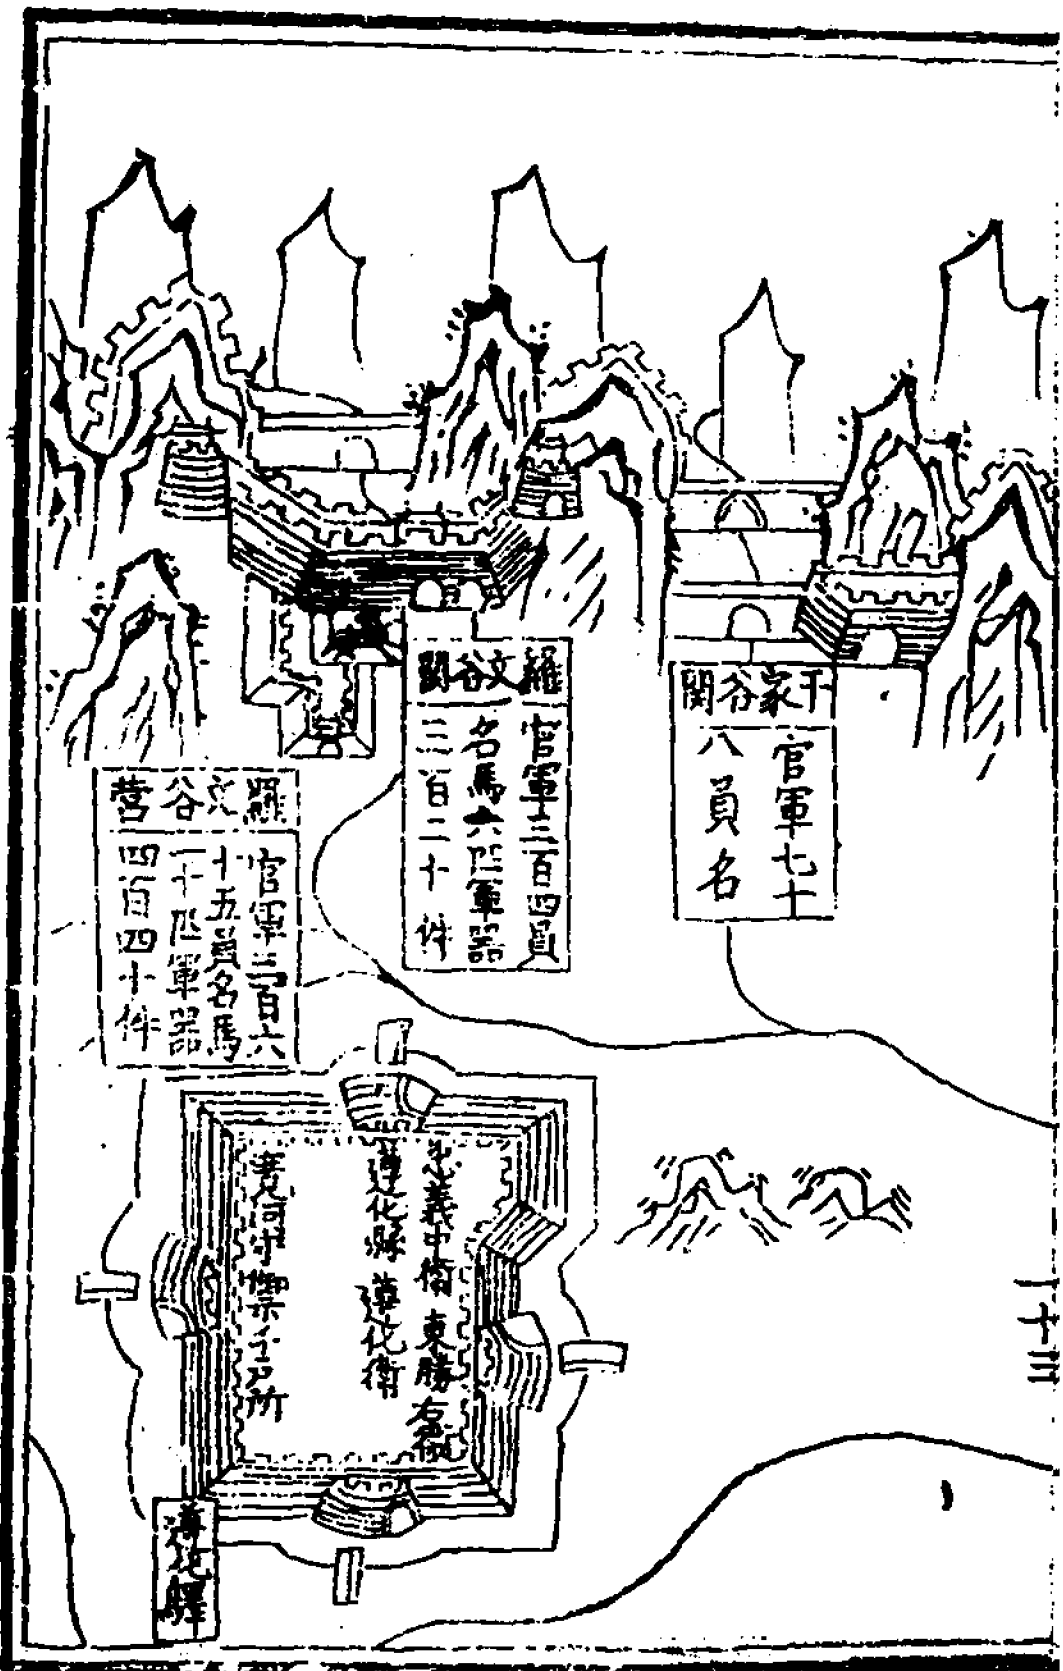 干家谷関
官軍七十
八員名
羅文谷関
官軍三百四員
名馬六匹軍器
三百二十件
羅文谷营
官軍三百六
十五員名馬
一十匹軍器
四百四十件
忠義中衛 東勝右衛
遵化縣 遵化衛
寛河守禦千户所
遵化驛
十三